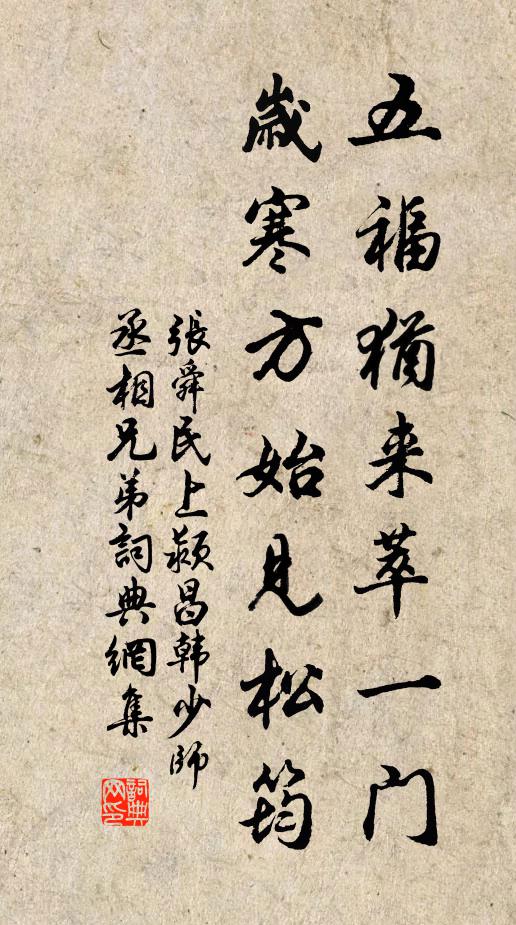 五福猶来萃一门
歲寒方始見松筠
張舜民上颍昌韩少師
丞相兄弟詞典網集
詞典网印